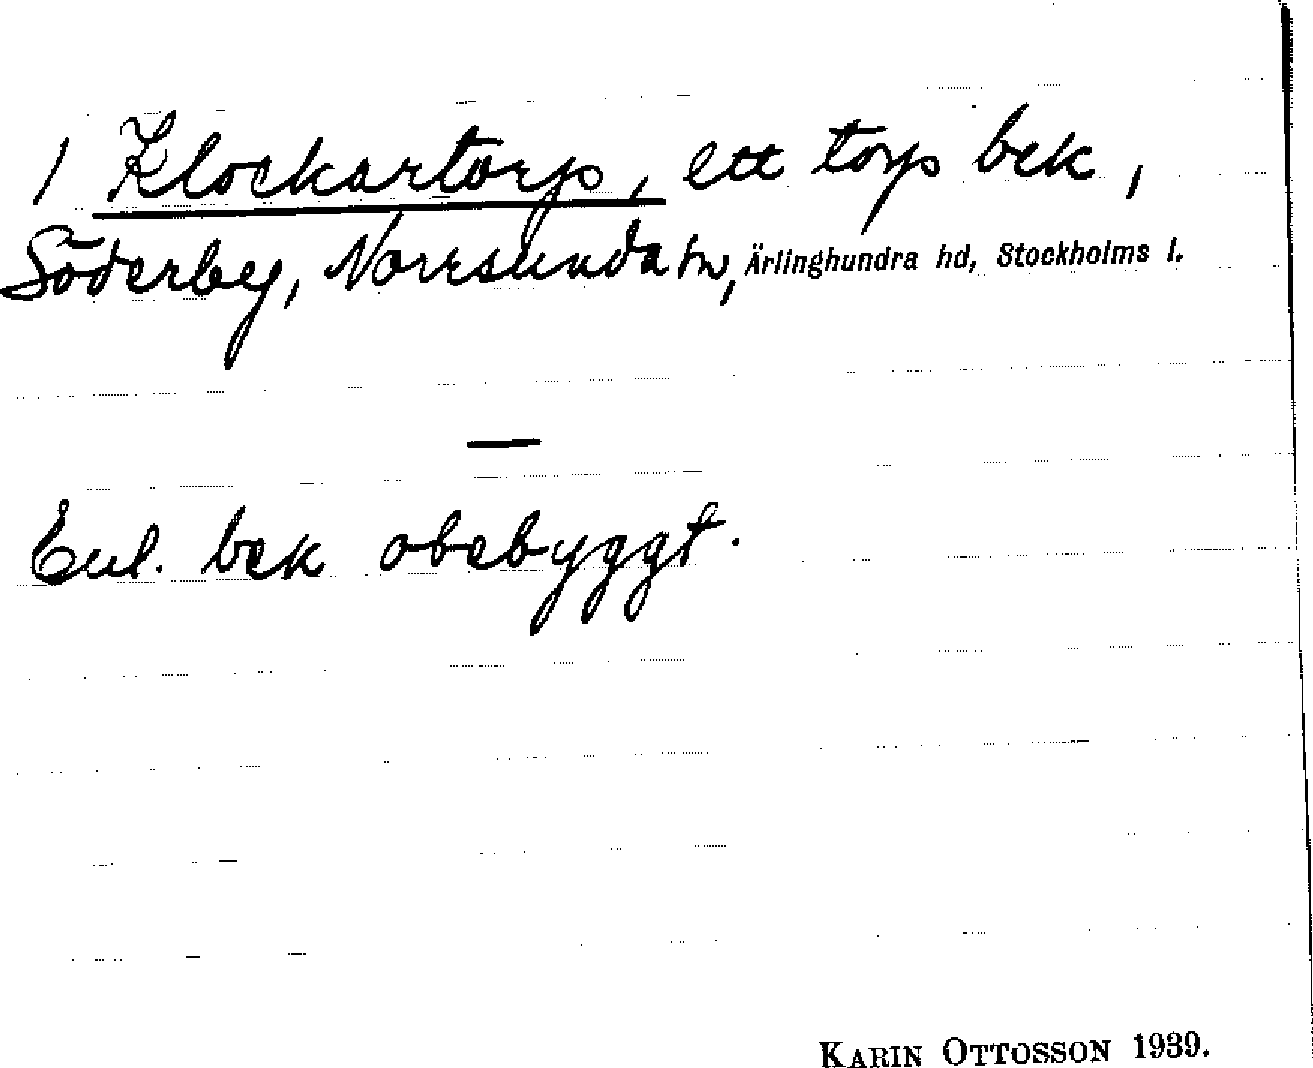 / Klockartorp, ett torp bek,
Söderby, Norrsunda sn, Ärlinghundra hd, Stockholms l.
—
Enl. bek obebyggt.
KARIN OTTOSSON 1939.